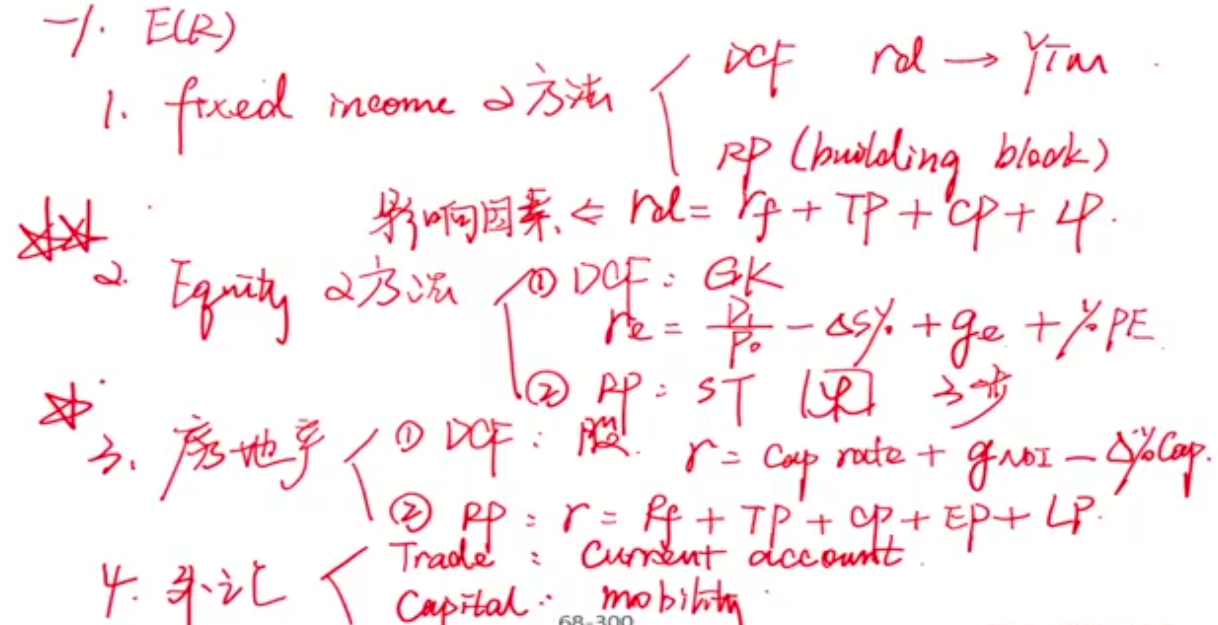 一. E(R)
1. fixed income 2方法 DCF rd → YTM
RP (building block)
影响因素 ⇐ rd = rf + TP + CP + LP.
2. Equity 2方法 ① DCF: GK
re = D1/P0 - ΔS% + ge + %PE
② RP: ST 3步
3. 房地产 ① DCF: 股 r = cap rate + gNOI - Δ%Cap.
② RP: r = Rf + TP + CP + EP + LP.
4. 外汇 Trade: Current account
Capital: mobility
68-300